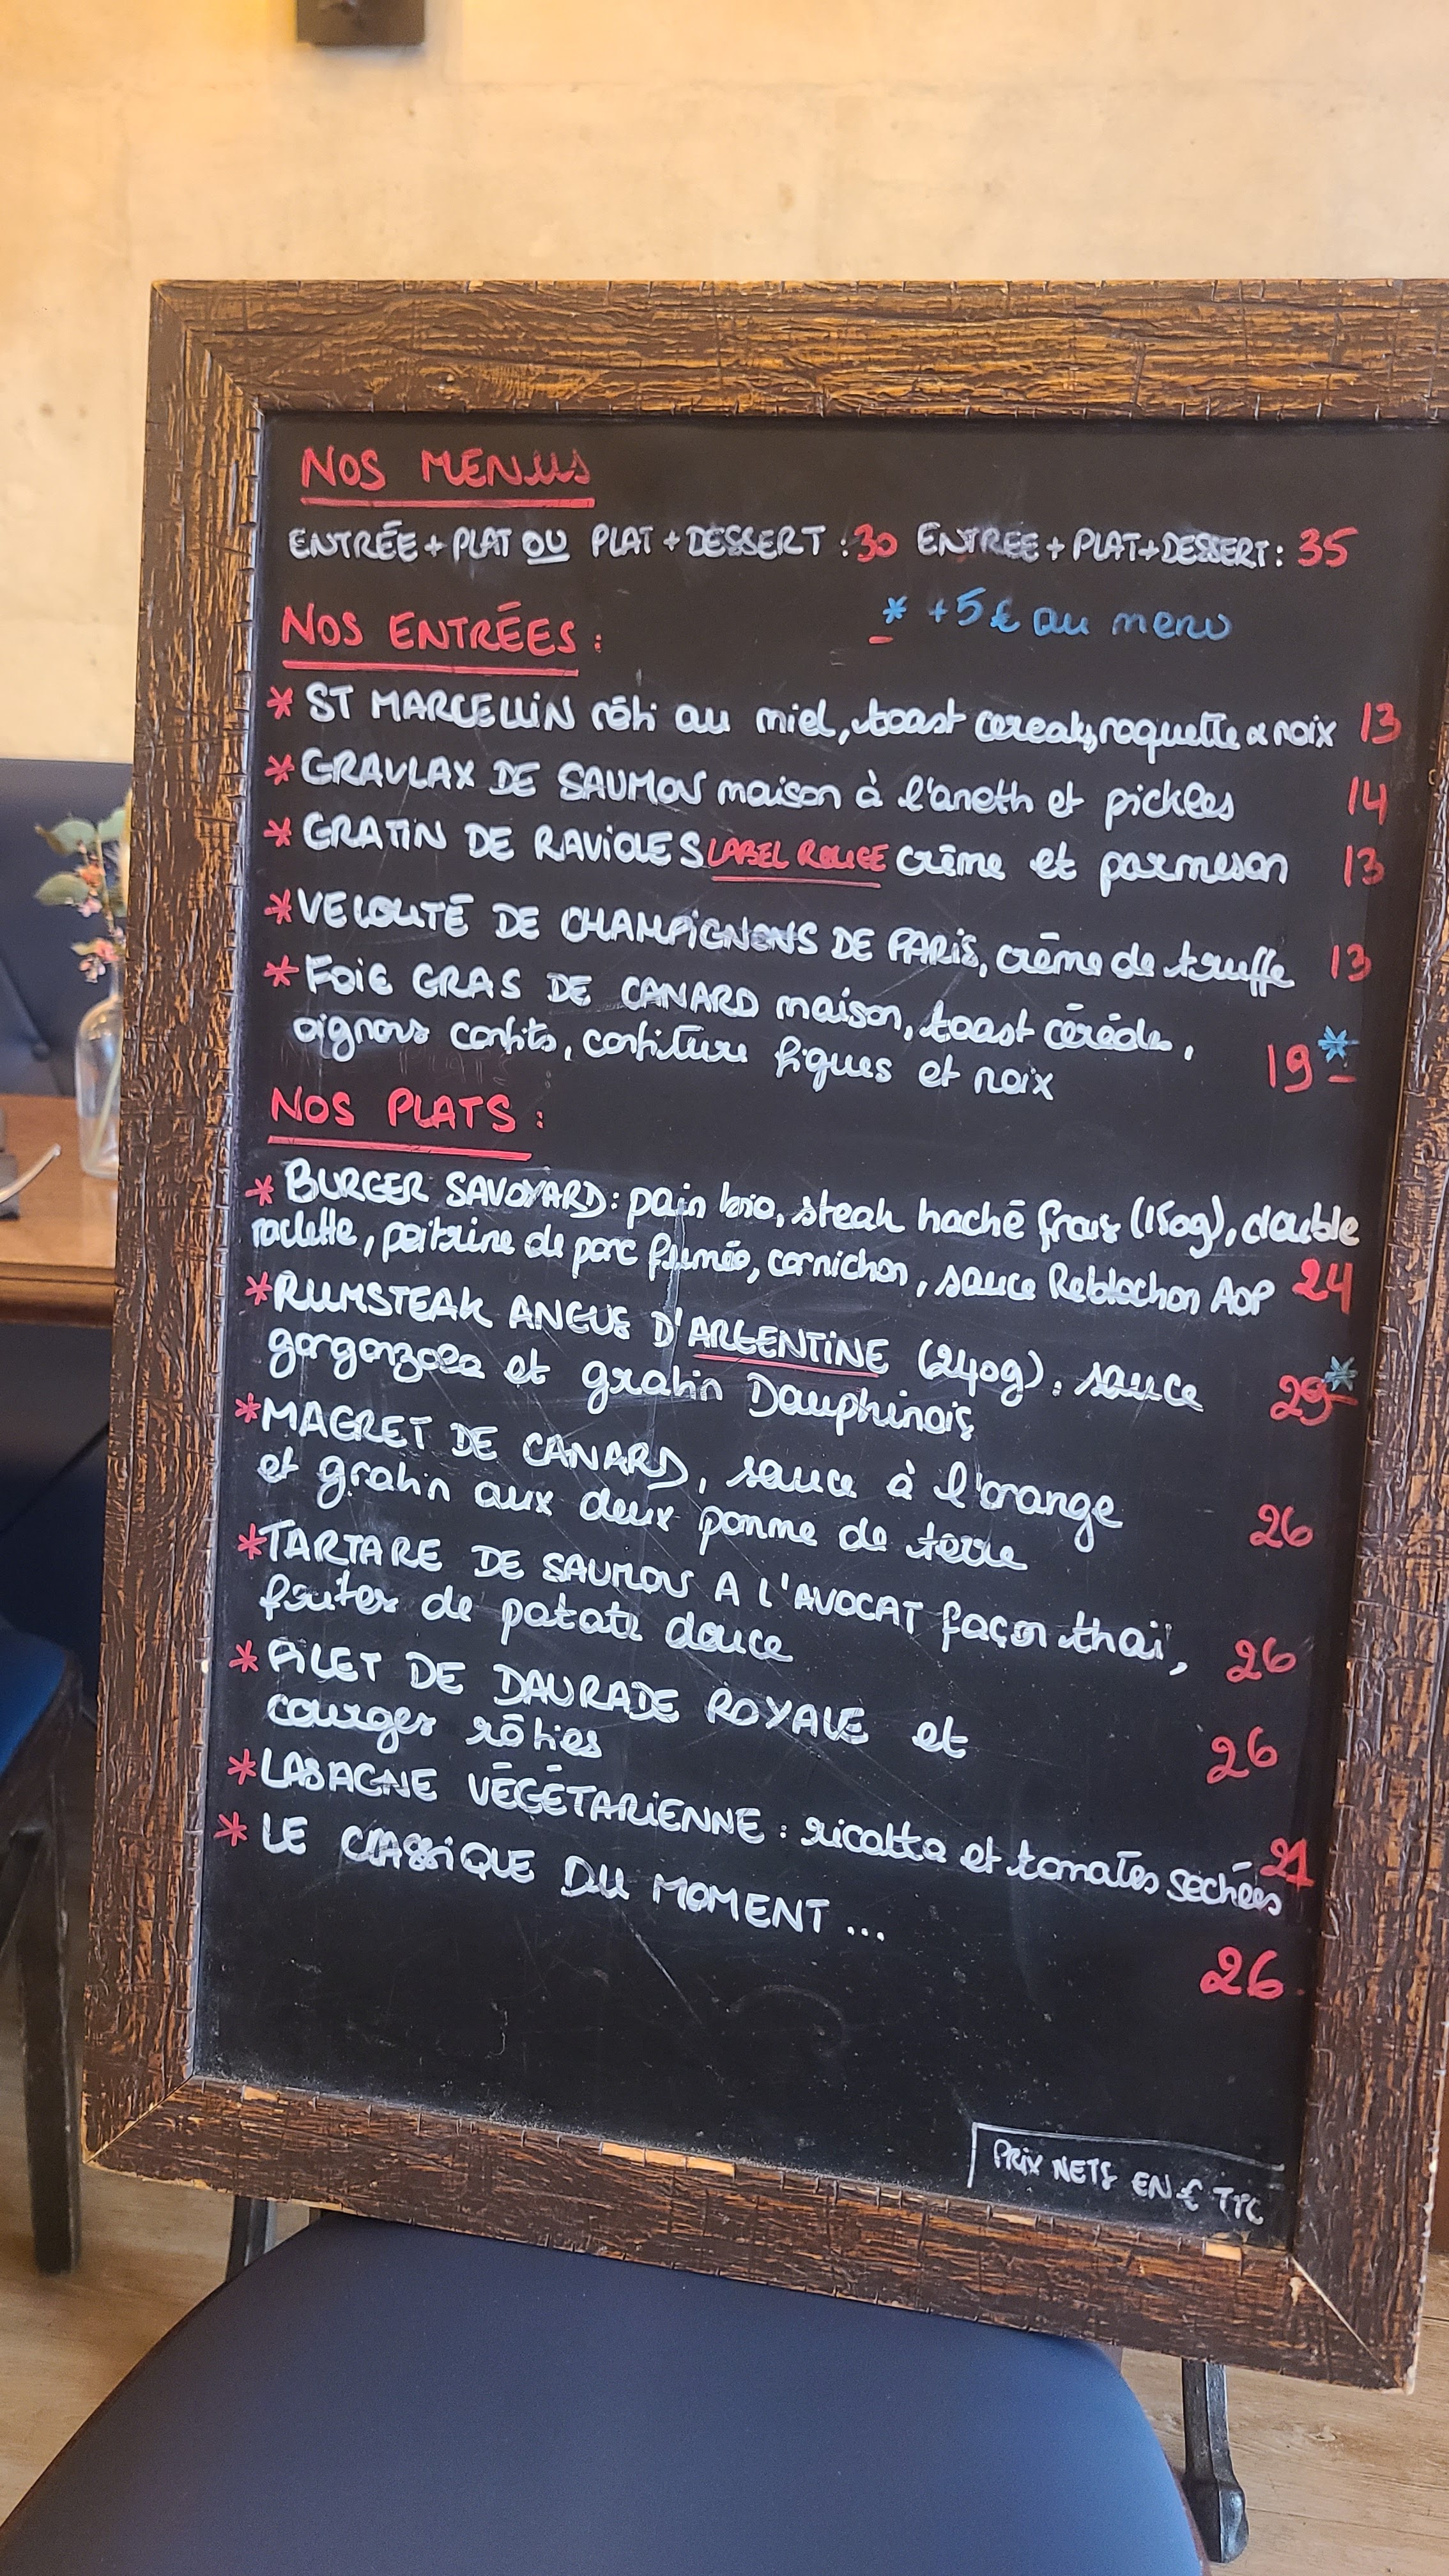 NOS MENUS
ENTRÉE + PLAT OU PLAT + DESSERT : 30 ENTREE + PLAT + DESSERT : 35
* +5€ au menu
NOS ENTRÉES :
* ST MARCELLIN rôti au miel, toast cereals, roquette & noix 13
* GRAVLAX DE SAUMON maison à l'aneth et pickles 14
* GRATIN DE RAVIOLES LABEL ROUGE crème et parmesan 13
* VELOUTÉ DE CHAMPIGNONS DE PARIS, crème de truffe 13
* FOIE GRAS DE CANARD maison, toast céréale,
oignons confits, confiture figues et noix 19 *
NOS PLATS :
* BURGER SAVOYARD : pain bio, steak haché frais (150g), double
raclette, poitrine de porc fumée, cornichon, sauce Reblochon AOP 24
* RUMSTEAK ANGUS D'ARGENTINE (240g), sauce
gorgonzola et gratin Dauphinois 29 *
* MAGRET DE CANARD, sauce à l'orange
et gratin aux deux pomme de terre 26
* TARTARE DE SAUMON A L'AVOCAT façon thaï,
frites de patate douce 26
* FILET DE DAURADE ROYALE et
courges rôties 26
* LASAGNE VÉGÉTARIENNE : ricotta et tomates sechées 21
* LE CLASSIQUE DU MOMENT ...
26
PRIX NETS EN € TTC